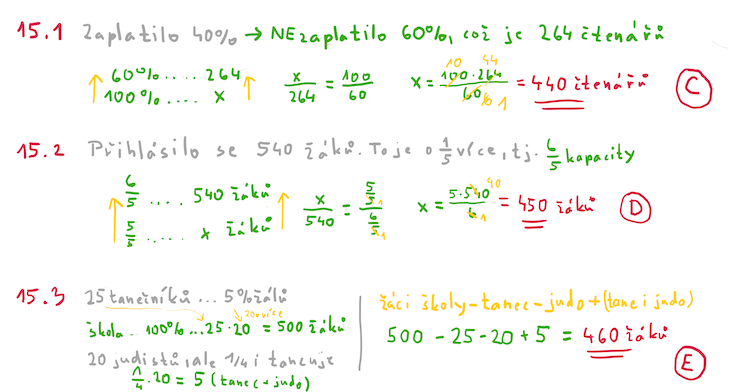 15.1 Zaplatilo 40% → NEzaplatilo 60%, což je 264 čtenářů
↑ 60% .... 264 ↑ x/264 = 100/60 x = 100·264/60 = 440 čtenářů C
100% .... x
10 44 6 1
15.2 Přihlásilo se 540 žáků. To je o 1/5 více, tj. 6/5 kapacity
↑ 6/5 .... 540 žáků ↑ x/540 = 5/5 / 6/5 x = 5·540/6 = 450 žáků D
5/5 .... x žáků
1 1 90 1
15.3 25 tanečníků ... 5% žáků
20x více
škola - 100% ... 25·20 = 500 žáků
20 judistů, ale 1/4 i tancuje
1/4 · 20 = 5 (tanec + judo)
žáci školy - tanec - judo + (tanec i judo)
500 - 25 - 20 + 5 = 460 žáků
E